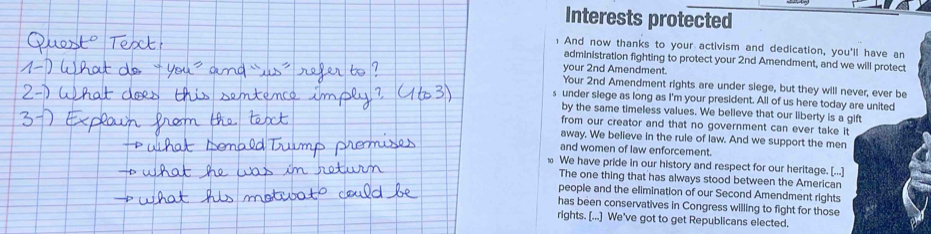 Quest° Text.
1-) What do "you" and "us" refer to?
2-) What does this sentence imply? (1 to 3)
3-) Explain from the text
→ what Donald Trump promises
→ what he was in return
→ what his motivat° could be
Interests protected
1 And now thanks to your activism and dedication, you'll have an
administration fighting to protect your 2nd Amendment, and we will protect
your 2nd Amendment.
Your 2nd Amendment rights are under siege, but they will never, ever be
5 under siege as long as I'm your president. All of us here today are united
by the same timeless values. We believe that our liberty is a gift
from our creator and that no government can ever take it
away. We believe in the rule of law. And we support the men
and women of law enforcement.
10 We have pride in our history and respect for our heritage. [...]
The one thing that has always stood between the American
people and the elimination of our Second Amendment rights
has been conservatives in Congress willing to fight for those
rights. [...] We've got to get Republicans elected.